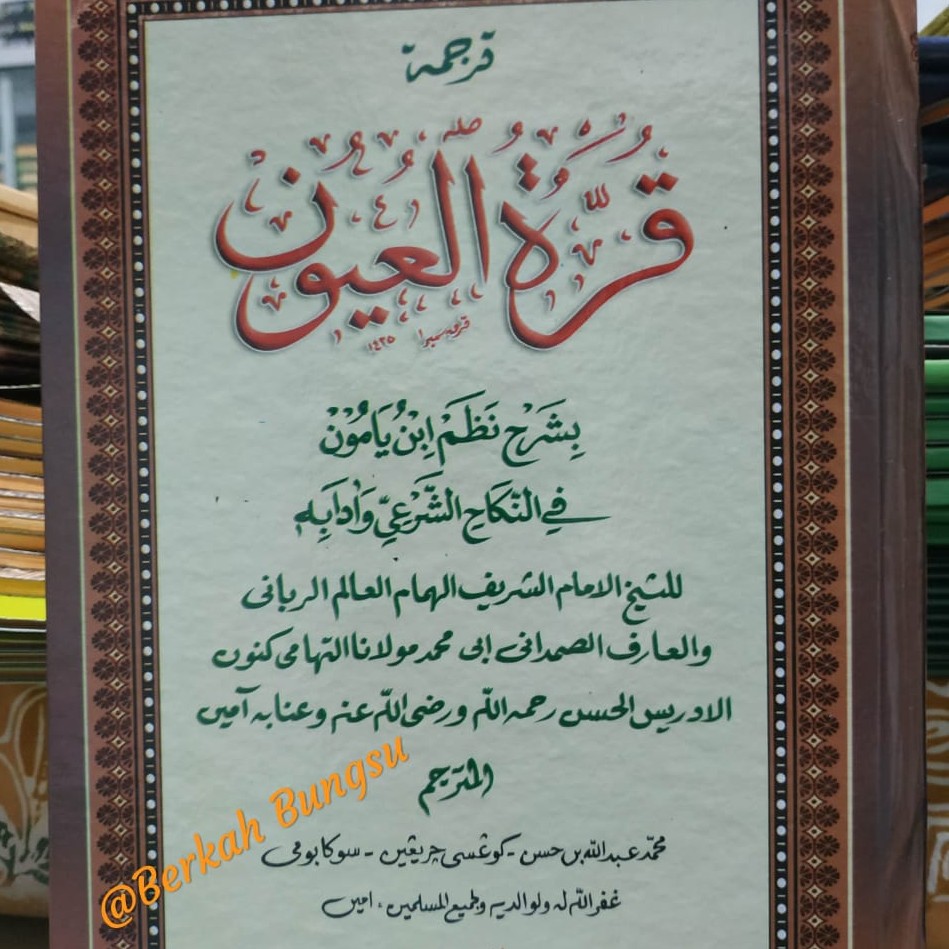 ترجمة
قُرَّةُ الْعُيُونِ
١٤٢٥
بِشَرْحِ نَظَمَ اِبْنُ يَامُوْنْ
فِي النِّكَاحِ الشَّرْعِيِّ وَاٰدَابِهِ
للشيخ الامام الشريف الهمام العالم الربانى
والعارف الصمدانى ابى محمد مولانا التهامى كنون
الادريس الحسن رحمه اللّه ورضى اللّه عنه وعنا به آمين
المترجم
محمّد عبد اللّه بن حسن - كوڠسى چريڠين - سوكابومى
غفر اللّه له ولوالديه ولجميع المسلمين ، امين
@Berkah Bungsu